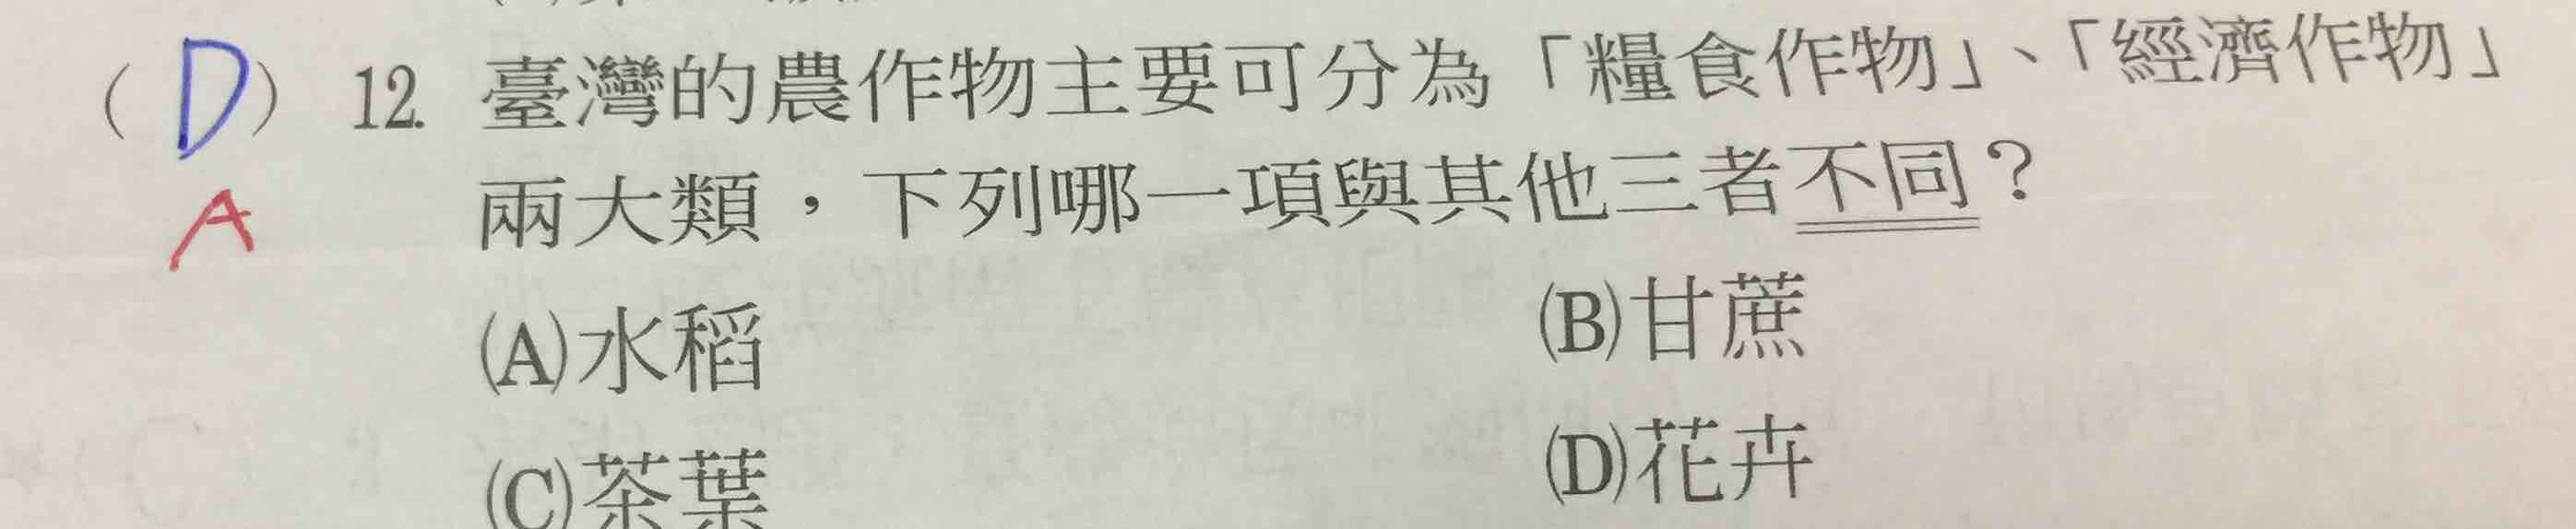 ( D ) 12. 臺灣的農作物主要可分為「糧食作物」、「經濟作物」
A 兩大類，下列哪一項與其他三者不同？
(A)水稻 (B)甘蔗
(C)茶葉 (D)花卉